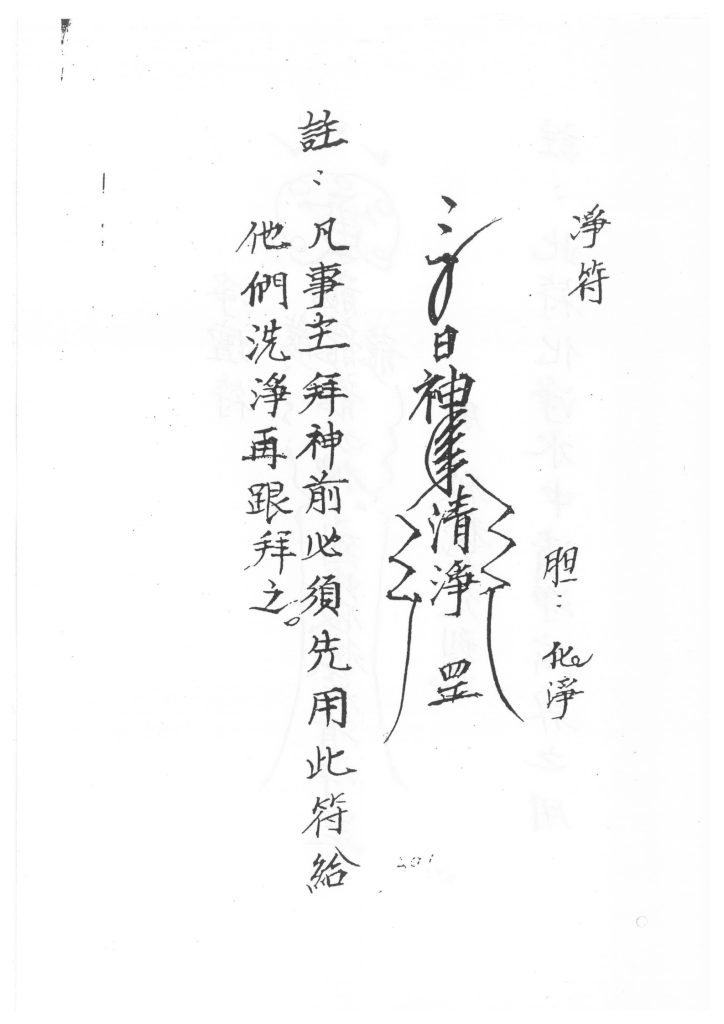 淨符
胆：化淨
日神
清淨
罡
註：凡事主拜神前必須先用此符給
他們洗淨再跟拜之。
201